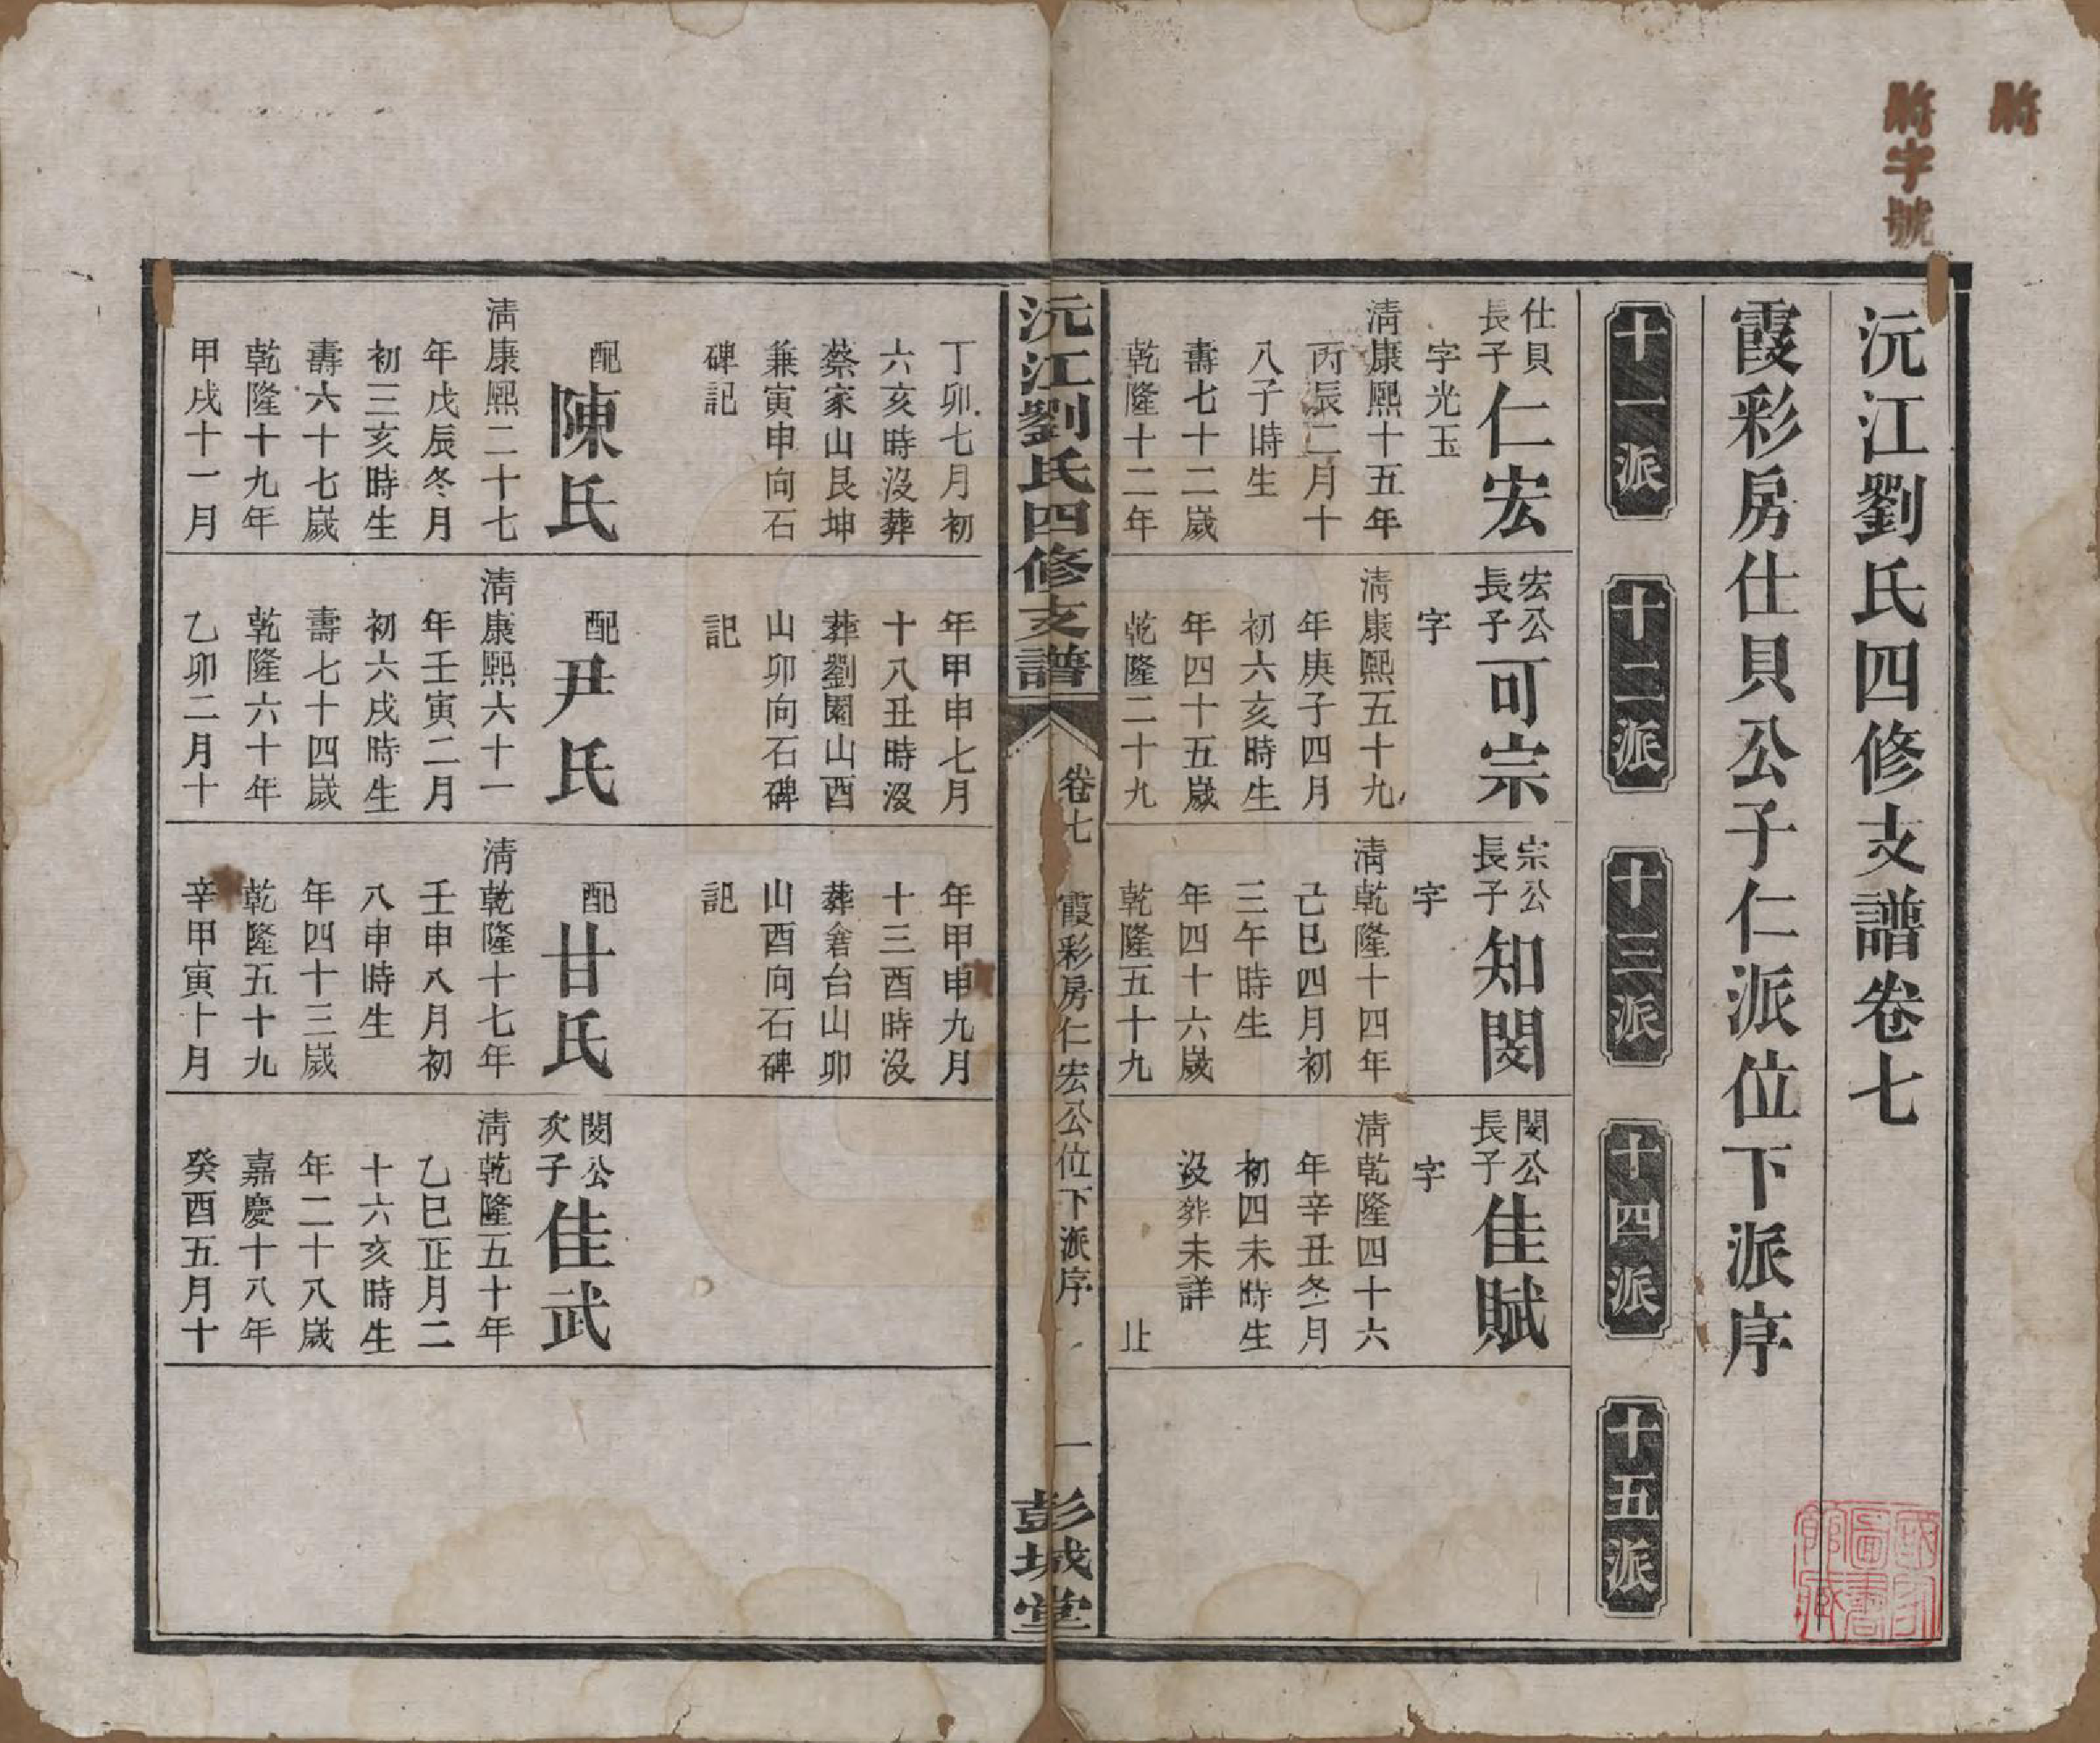 字號
沅江劉氏四修支譜卷七
霞彩房仕貝公子仁派位下派序
十一派
十二派
十三派
十四派
十五派
仕貝長子仁宏
字光玉
清康熙十五年
丙辰二月十
八子時生
壽七十二歲
乾隆十二年
丁卯七月初
六亥時没葬
蔡家山艮坤
兼寅申向石
碑記
配陳氏
清康熙二十七
年戊辰冬月
初三亥時生
壽六十七歲
乾隆十九年
甲戌十一月
宏公長子可宗
字
清康熙五十九
年庚子四月
初六亥時生
年四十五歲
乾隆二十九
年甲申七月
十八丑時没
葬劉園山酉
山卯向石碑
記
配尹氏
清康熙六十一
年壬寅二月
初六戌時生
壽七十四歲
乾隆六十年
乙卯二月十
宗公長子知閔
字
清乾隆十四年
己巳四月初
三午時生
年四十六歲
乾隆五十九
年甲申九月
十三酉時没
葬倉台山卯
山酉向石碑
記
配甘氏
清乾隆十七年
壬申八月初
八申時生
年四十三歲
乾隆五十九
辛甲寅十月
閔公長子佳賦
字
清乾隆四十六
年辛丑冬月
初四未時生
没葬未詳
止
閔公次子佳武
清乾隆五十年
乙巳正月二
十六亥時生
年二十八歲
嘉慶十八年
癸酉五月十
沅江劉氏四修支譜
卷七
霞彩房仁宏公位下派序
一
彭城堂